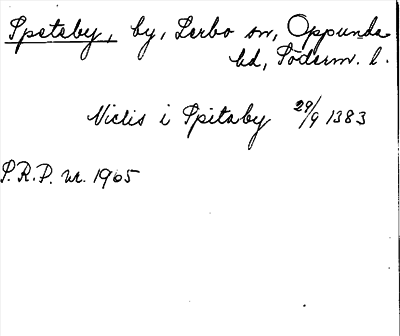 Spetsby, by, Lerbo sn, Oppunda
hd, Söderm. l.
Niclis i Spitaby 29/9 1383
S.R.P. nr. 1965